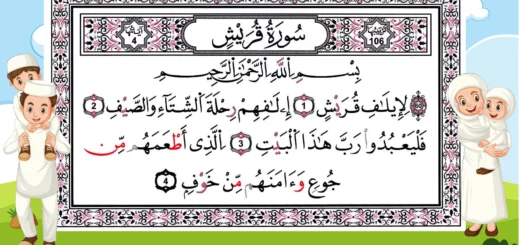 سُورَةُ قُرَيْشٍ
106
4
بِسْمِ اللَّهِ الرَّحْمَٰنِ الرَّحِيمِ
لِإِيلَٰفِ قُرَيْشٍ 1 إِۦلَٰفِهِمْ رِحْلَةَ الشِّتَآءِ وَالصَّيْفِ 2
فَلْيَعْبُدُوا۟ رَبَّ هَٰذَا الْبَيْتِ 3 الَّذِىٓ أَطْعَمَهُم مِّن
جُوعٍ وَءَامَنَهُم مِّنْ خَوْفٍۭ 4